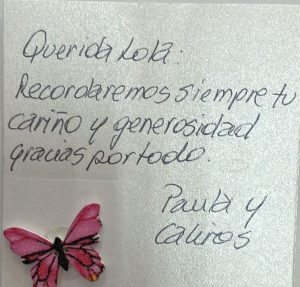 Querida Lola:
Recordaremos siempre tu
cariño y generosidad
gracias por todo.
Paula y